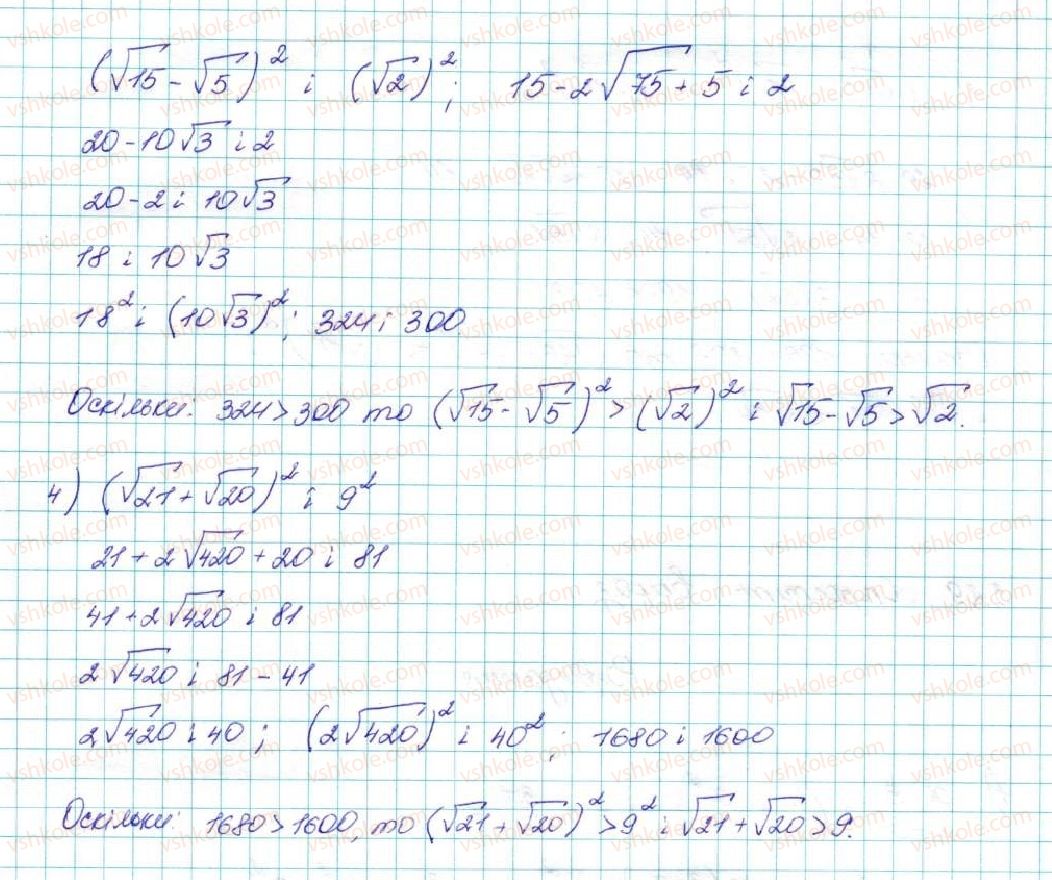 (√15 - √5)² і (√2)²; 15 - 2√75 + 5 і 2
20 - 10√3 і 2
20 - 2 і 10√3
18 і 10√3
18² і (10√3)²; 324 і 300
Оскільки: 324 > 300 то (√15 - √5)² > (√2)² і √15 - √5 > √2.
4) (√21 + √20)² і 9²
21 + 2√420 + 20 і 81
41 + 2√420 і 81
2√420 і 81 - 41
2√420 і 40; (2√420)² і 40²; 1680 і 1600
Оскільки: 1680 > 1600, то (√21 + √20)² > 9² і √21 + √20 > 9.